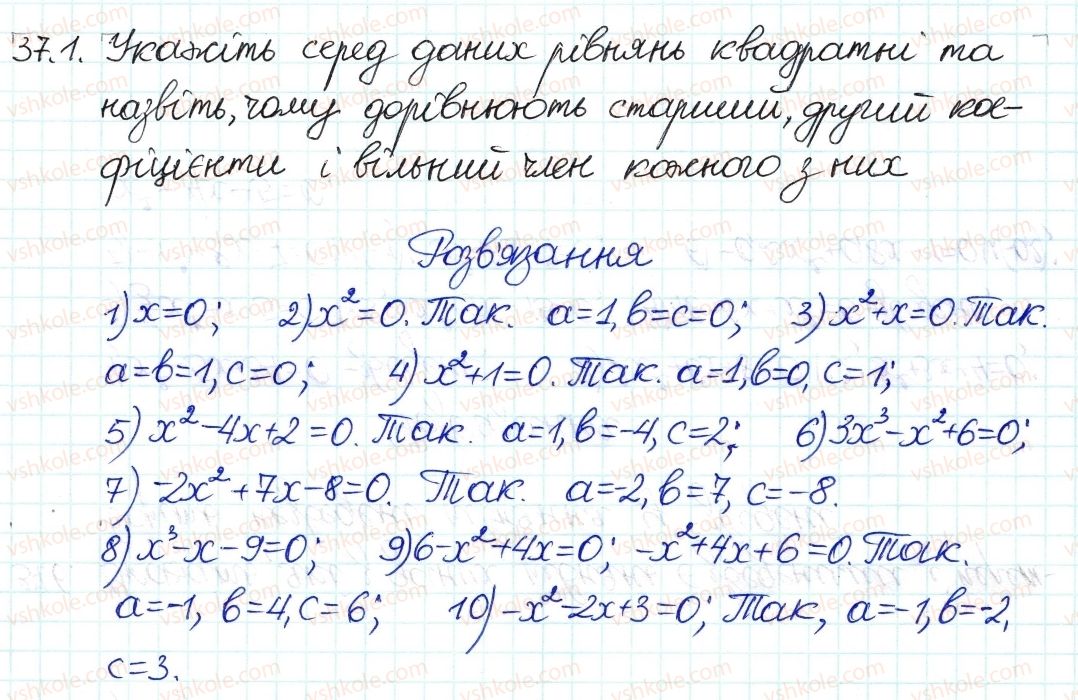 37.1. Укажіть серед даних рівнянь квадратні та
назвіть, чому дорівнюють старший, другий кое-
фіцієнти і вільний член кожного з них
Розв'язання
1) x=0; 2) x²=0. Так. a=1, b=c=0; 3) x²+x=0. Так.
a=b=1, c=0; 4) x²+1=0. Так. a=1, b=0, c=1;
5) x²-4x+2=0. Так. a=1, b=-4, c=2; 6) 3x³-x²+6=0;
7) -2x²+7x-8=0. Так. a=-2, b=7, c=-8.
8) x³-x-9=0; 9) 6-x²+4x=0; -x²+4x+6=0. Так.
a=-1, b=4, c=6; 10) -x²-2x+3=0; Так, a=-1, b=-2,
c=3.